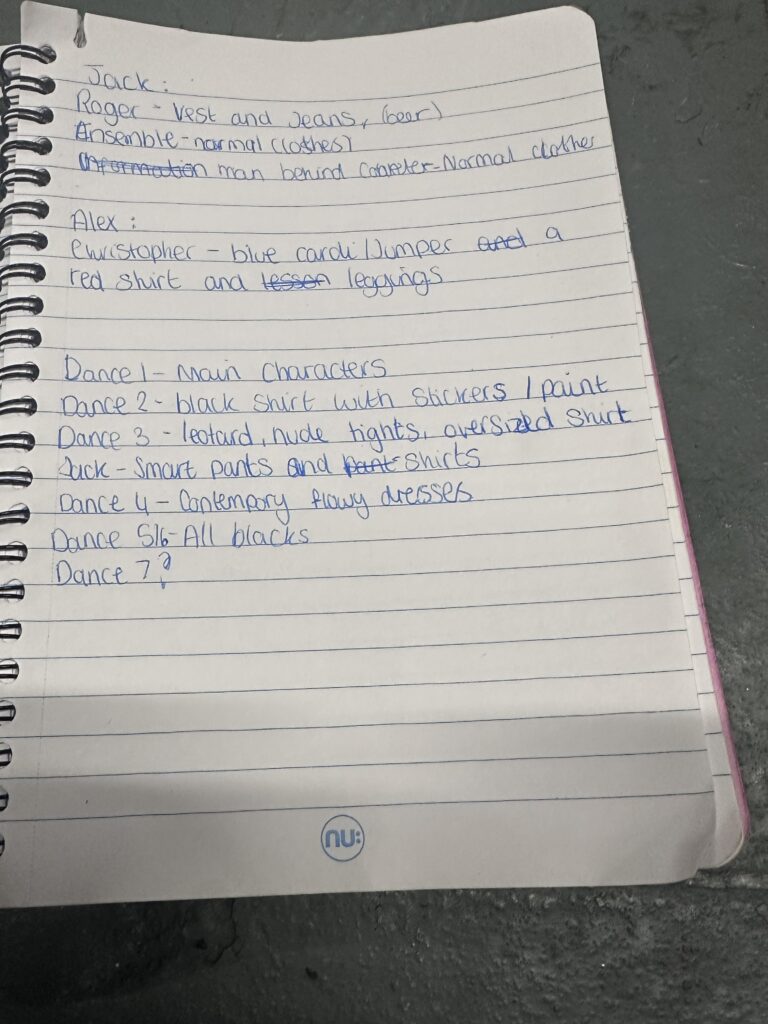 Jack :
Roger - vest and Jeans, (beer)
Ansemble - normal clothes)
information man behind Conreter - Normal clothes
Alex :
Christopher - blue cardi/Jumper and a
red shirt and lesson leggings
Dance 1 - Main Characters
Dance 2 - black shirt with Stickers / paint
Dance 3 - leotard, nude tights, oversized shirt
Jack - Smart pants and pant shirts
Dance 4 - Contempory flowy dresses
Dance 5/6 - All blacks
Dance 7?
nu: